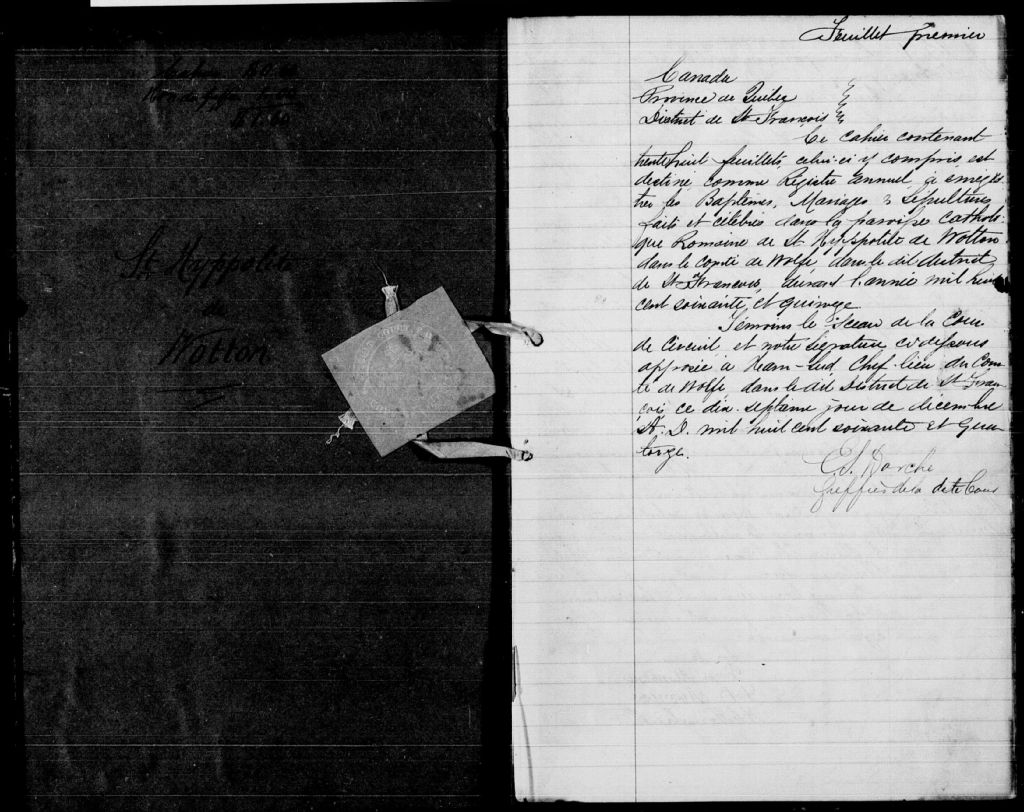 St. Hyppolite
de
Wotton
Feuillet premier
Canada
Province de Québec
District de St François
Ce cahier contenant
trente huit feuillets, celui-ci y compris, est
destiné comme Registre annuel, à enregis
trer les Baptêmes, Mariages & Sépultures
faits et célébrés dans la paroisse Catholi-
que Romaine de St Hyppolite de Wotton
dans le comté de Wolfe dans le dit district
de St-François, durant l'année mil huit
cent soixante et quinze
Témoins le Sceau de la Cour
de Circuit et notre signature ci-dessous
apposée à Ham-Sud Chef-lieu du Com-
té de Wolfe dans le dit District de St Fran
çois, ce dix-septième jour de décembre
A. D. mil huit cent soixante et Qua-
torze.
Darche
Greffier de la dite Cour